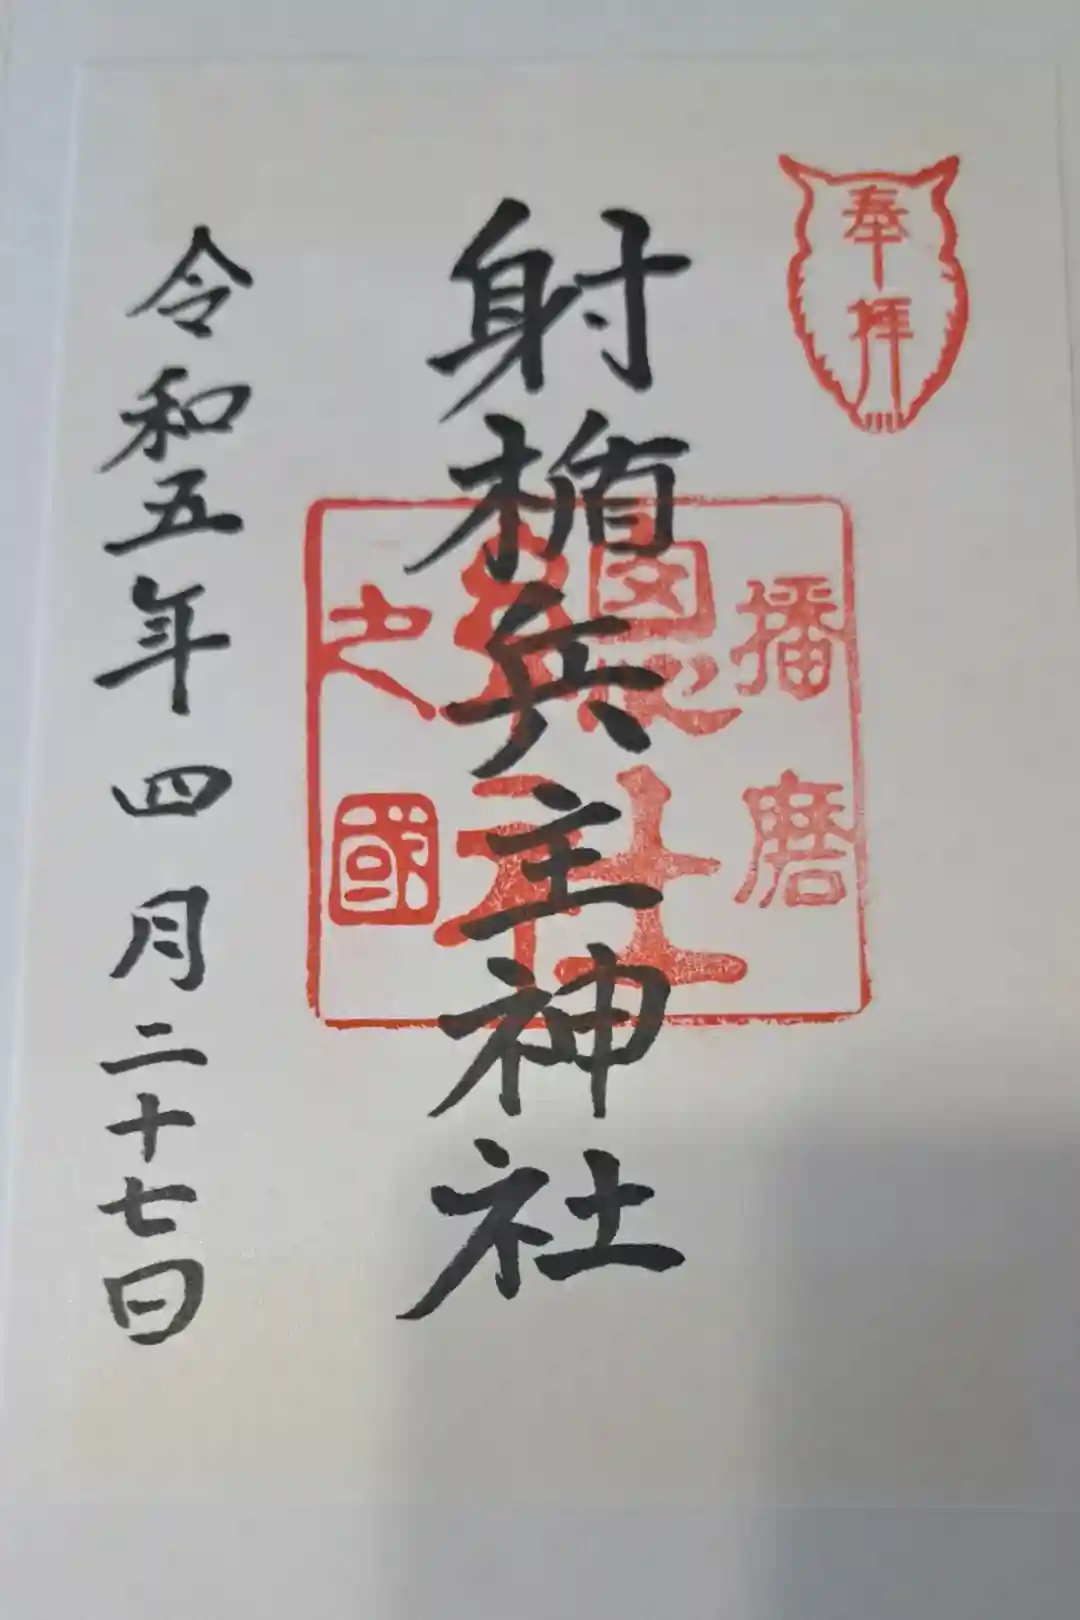 奉拝
射楯兵主神社
播磨
國
総社
之國
令和五年四月二十七日